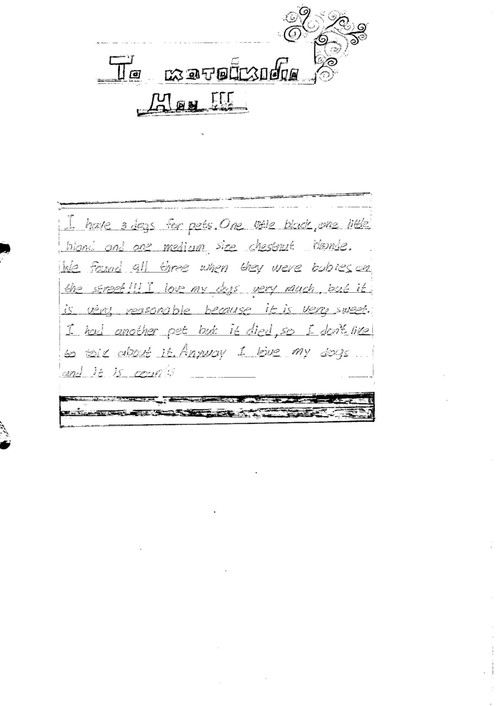 Το κατοικίδιο
Μου !!!
I have 3 dogs for pets. One little black, one little
blond and one medium size chestnut blonde.
We found all three when they were babies on
the street!!! I love my dogs very much, but it
is very reasonable because it is very sweet.
I had another pet but it died, so I don't like
to talk about it. Anyway I love my dogs
and it is counts